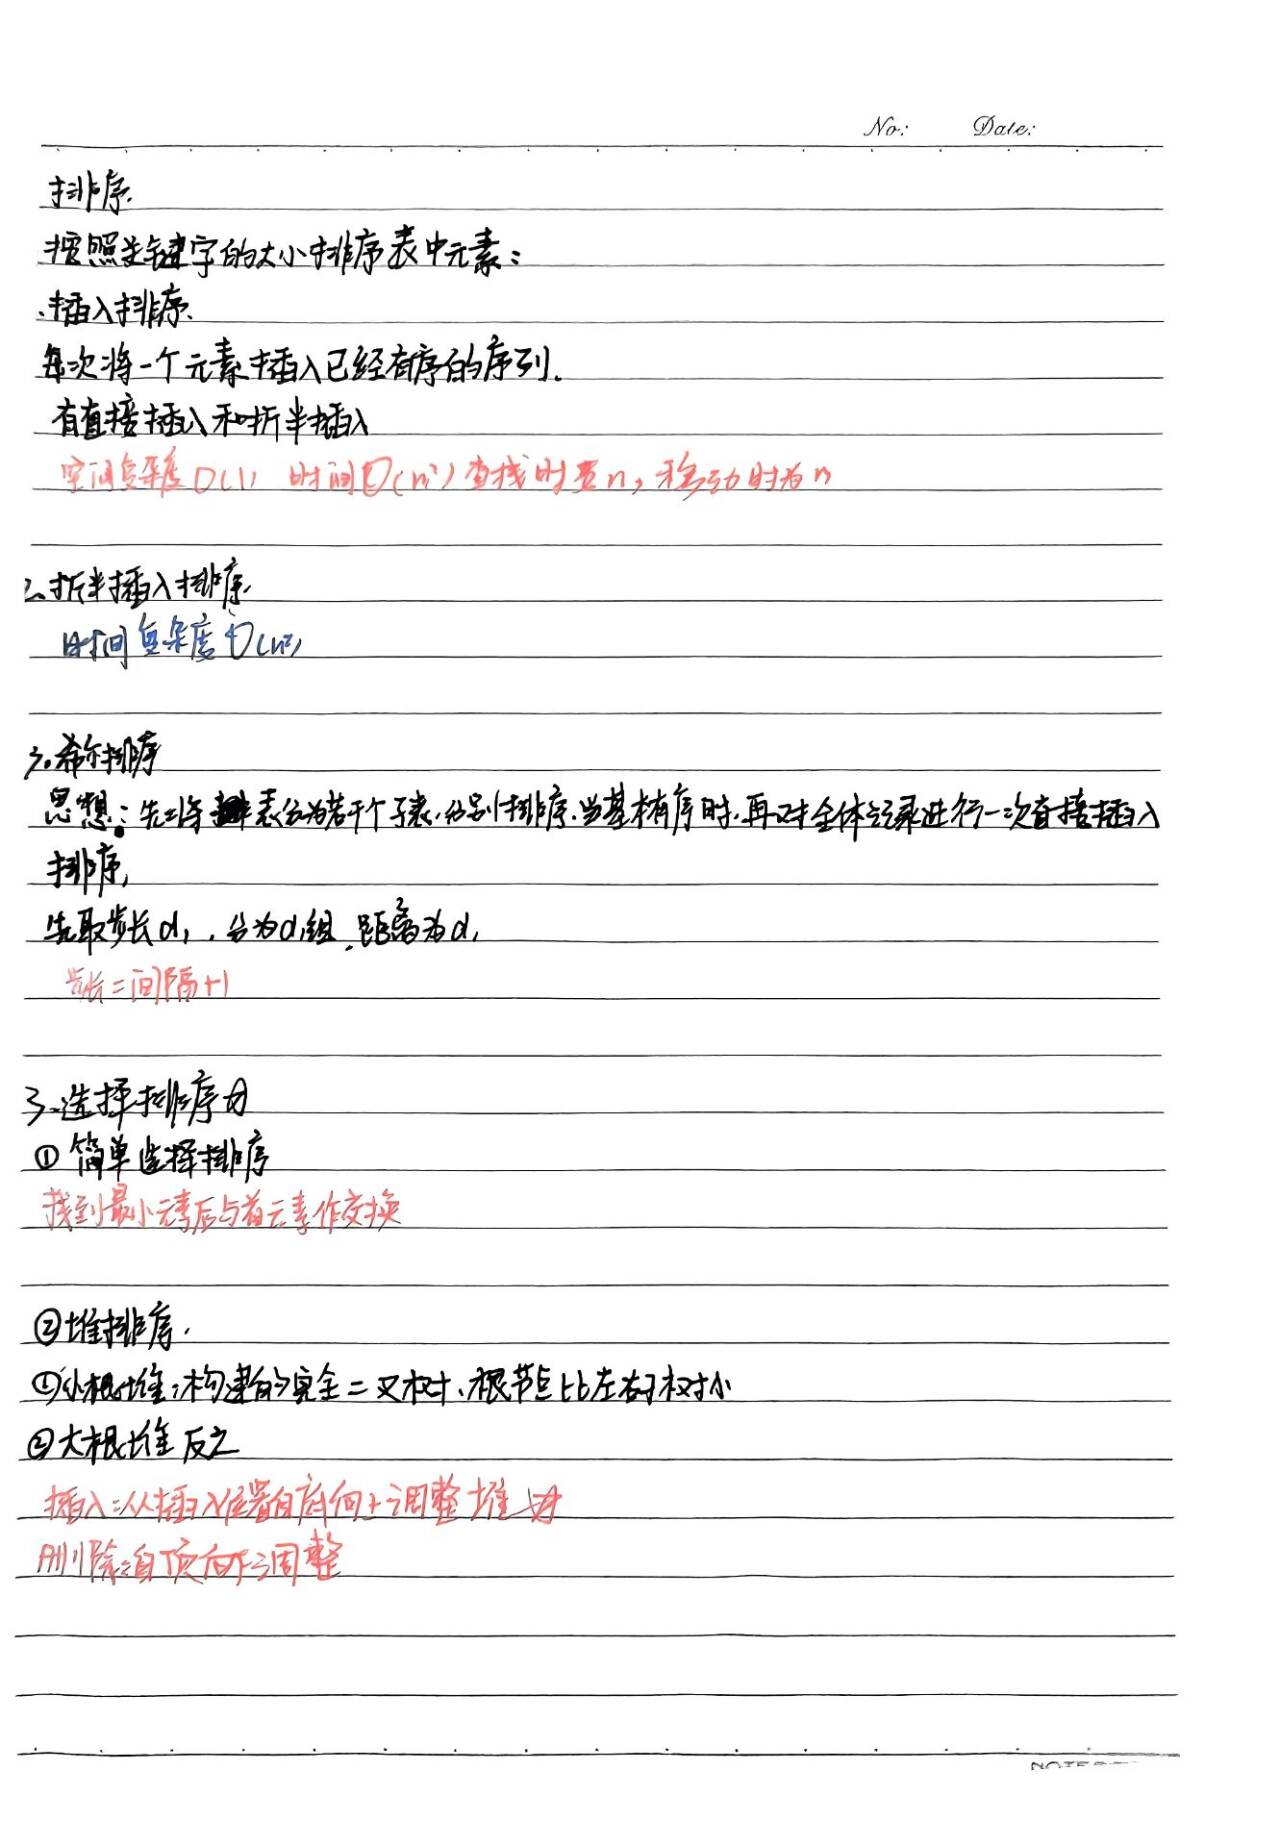 No: Date:
排序.
按照关键字的大小排序表中元素:
.插入排序.
每次将一个元素插入已经有序的序列.
有直接插入和折半插入
空间复杂度O(1) 时间O(n²) 查找时要n, 移动时为n
2.折半插入排序.
时间复杂度O(n²)
3.希尔排序
思想: 先将排表分为若干个子表.分别排序.当基本有序时.再对全体记录进行一次直接插入
排序,
先取步长d₁, 分为d₁组.距离为d₁
步长=间隔+1
3.选择排序
① 简单选择排序
找到最小元素后与首元素作交换
②堆排序.
①小根堆:构建的完全二叉树、根节点比左右子树小
②大根堆反之
插入:从插入位置自底向上调整堆
删除:自顶向下调整